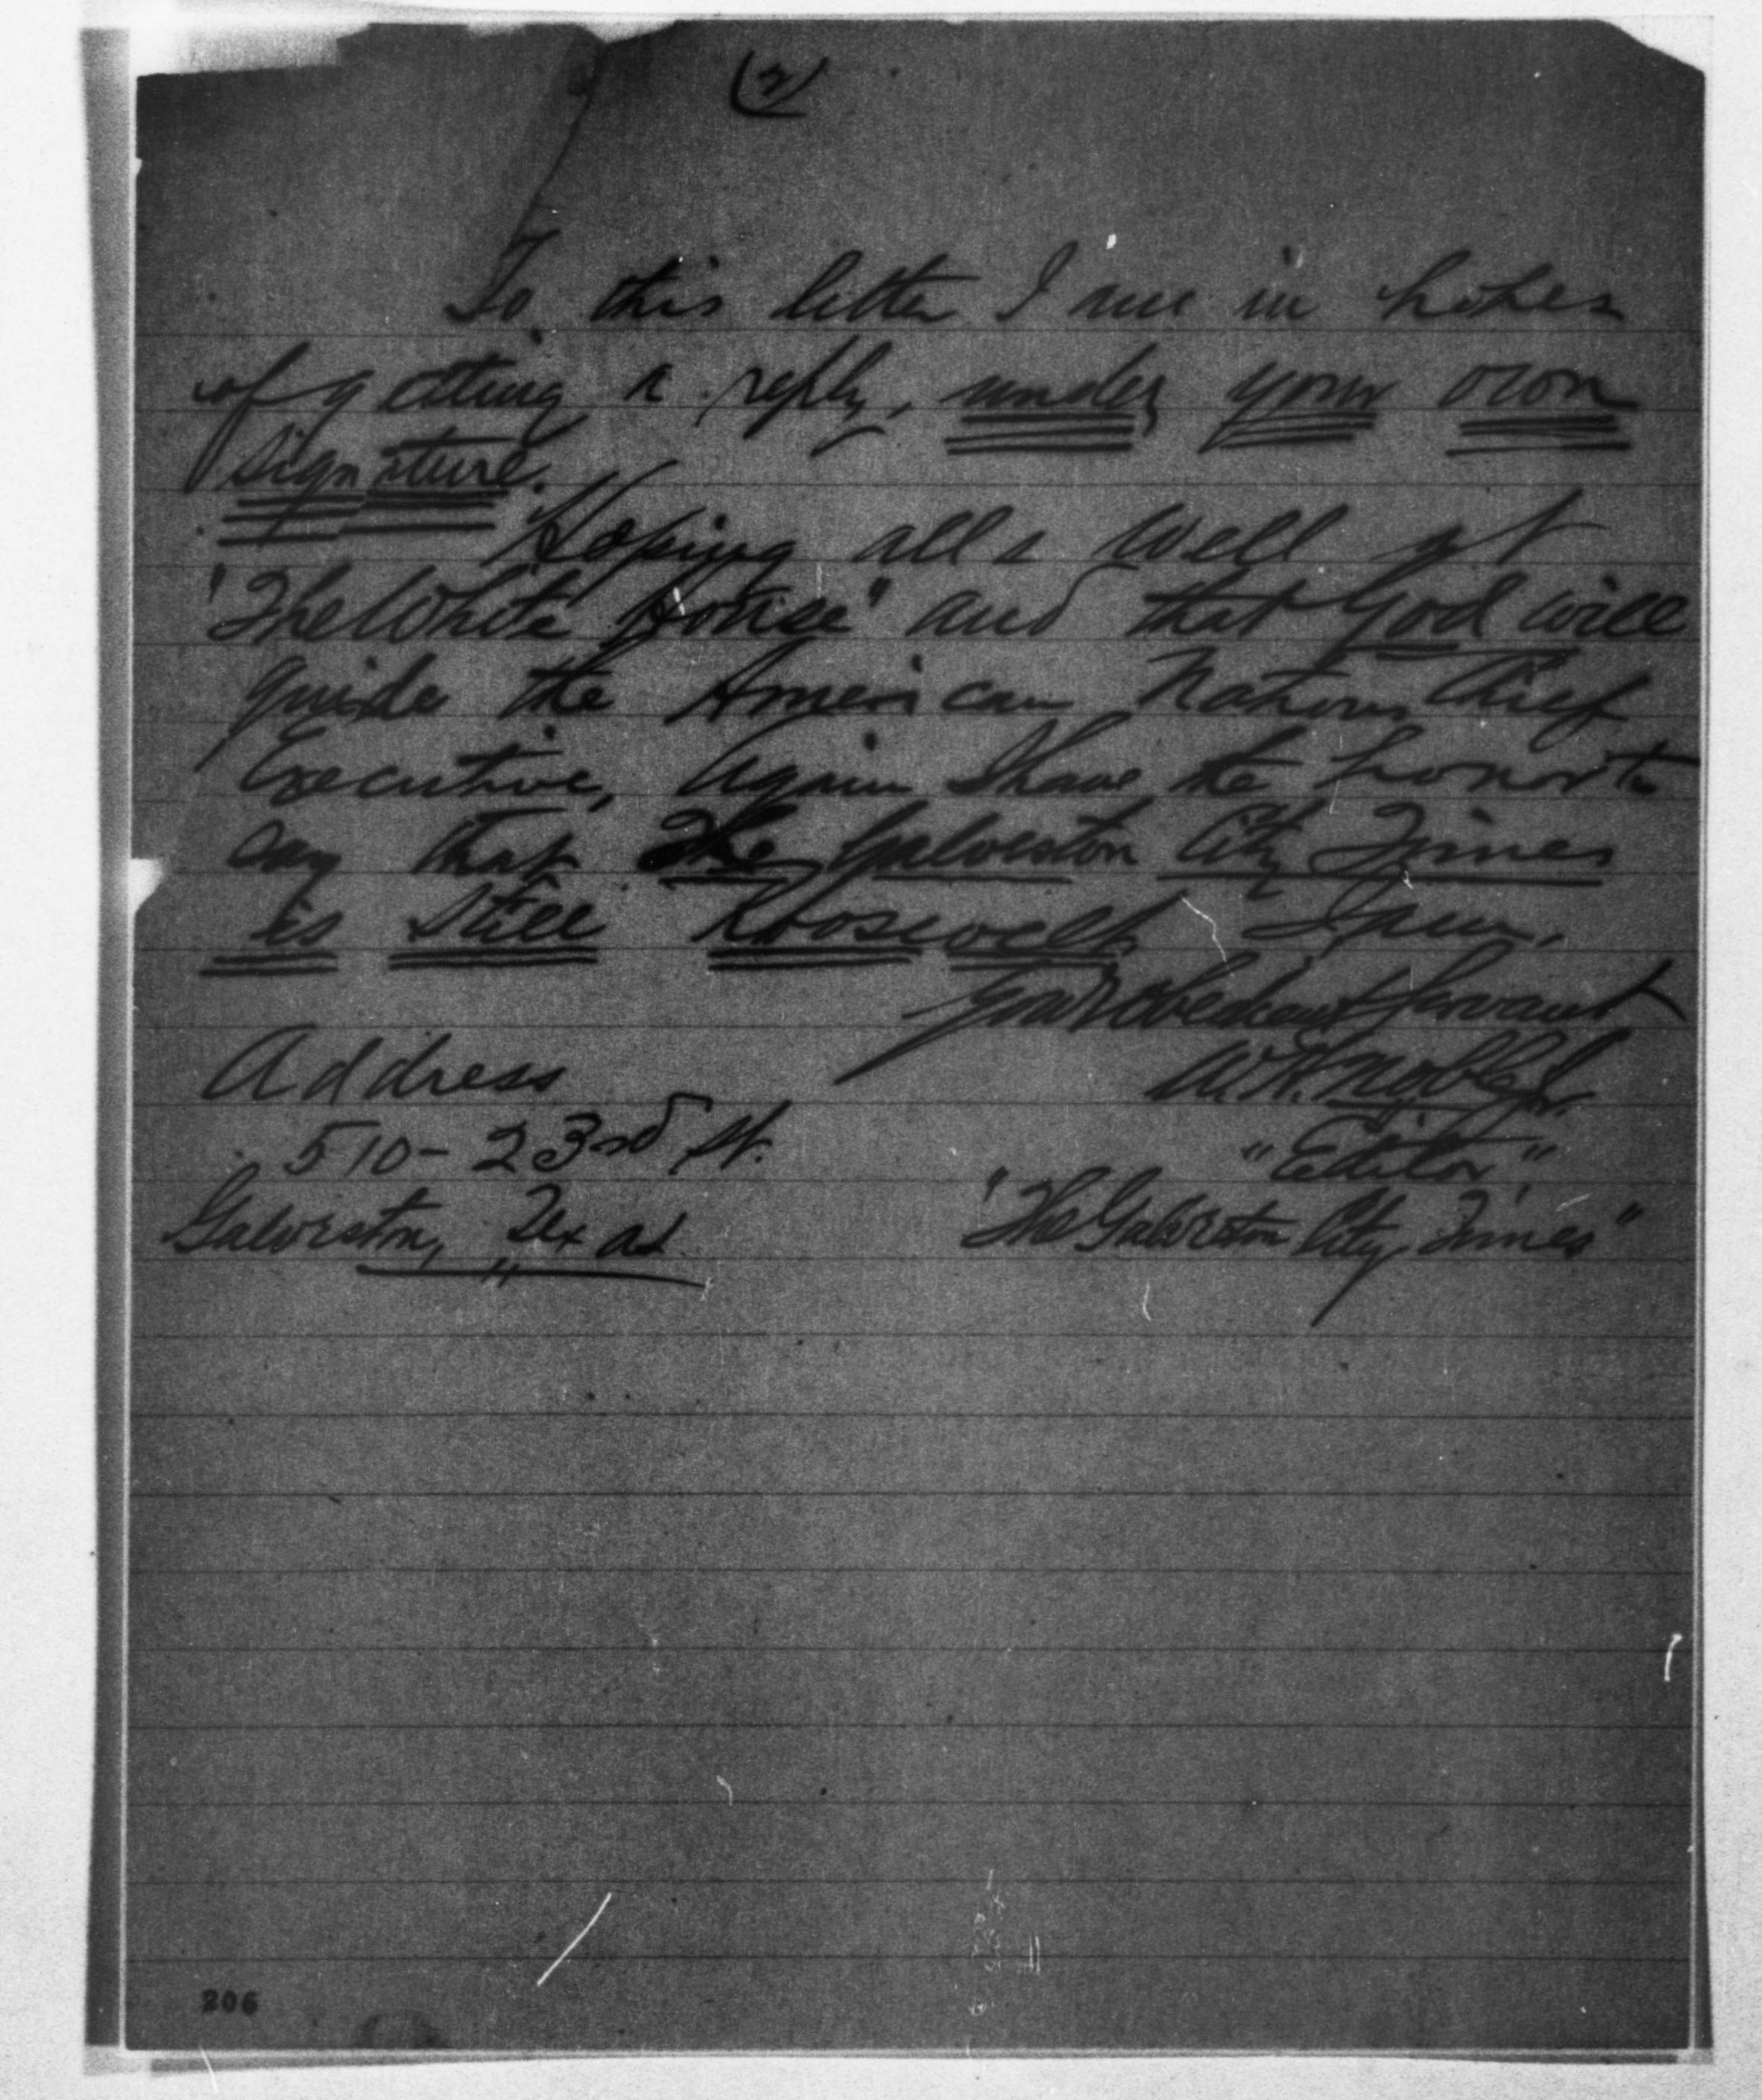 (2)
To this letter I am in hopes
of getting a reply, under your own
signature.
Hoping all s well at
"The White House" and that God will
guide the American Nations Chief
Executive, Again I have the honor to
say that The Galveston City Times
is still Roosevelt, I am,
Your obedient servant
W.H. Noble Jr.
"Editor"
"The Galveston City Times"
Address
510 - 23rd St.
Galveston, Texas
206